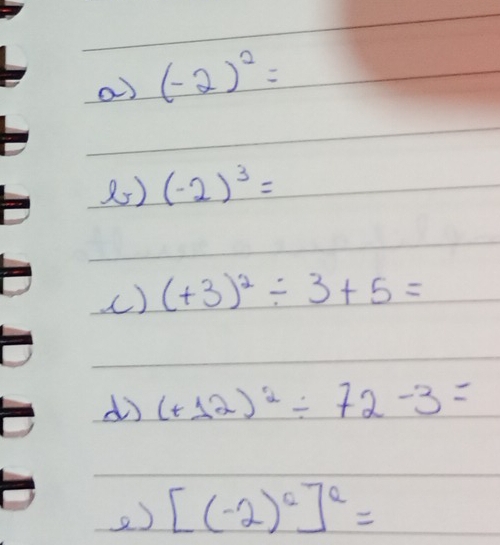 a) (-2)² =
b) (-2)³ =
c) (+3)² ÷ 3 + 5 =
d) (+12)² ÷ 72 - 3 =
e) [(-2)²]² =